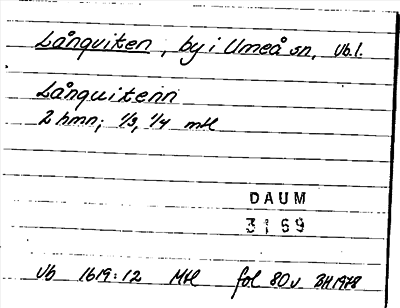 Långviken, by i Umeå sn, Vb.l.
Långuitenn
2 hmn; 1/3, 1/4 mtl
DAUM
3169
Vb 1619:12 Mtl fol 80v BH 1978